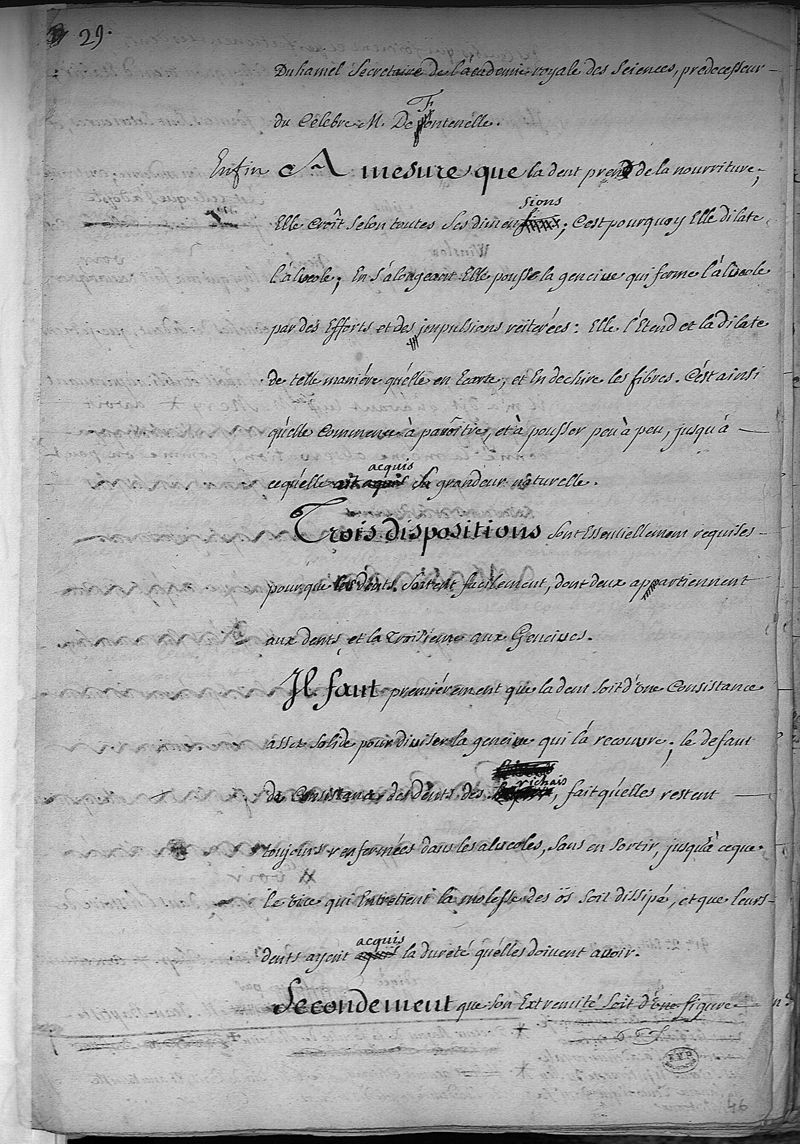 29.
Duhamel Secretaire de l'academie royale des Sciences, predecesseur
du Célebre M. De Fontenelle.
Enfin A mesure que la dent prend de la nourriture,
Elle Croît selon toutes ses dimensions; C'est pourquoy Elle dilate
l'alveole; En s'alongeant Elle pousse la gencive qui ferme l'alveole
par des Efforts et des impulsions reïterées: Elle l'Etend et la dilate
de telle maniére quelle en Ecarte, et En dechire les fibres. C'est ainsi
qu'elle commence à paroître, et à pousser peu à peu, jusqu'à
cequ'elle acquis sa grandeur naturelle.
Trois dispositions sont Essentiellement requises
pour que les dents sortent facilement, dont deux appartiennent
aux dents, et la Troisiéme aux Gencives.
Il faut premiérement que la dent soit d'une Consistance
assez solide pour diviser la gencive qui la recouvre; le defaut
de Consistance des dents des richais, fait qu'elles restent
toujours renfermées dans les alveoles, sans en sortir, jusqu'à ceque
le vice qui Entretient la molesse des ôs soit dissipé, et que leurs
dents ayent acquis la dureté qu'elles doivent avoir.
Secondement que son Extremité soit d'une figure
46